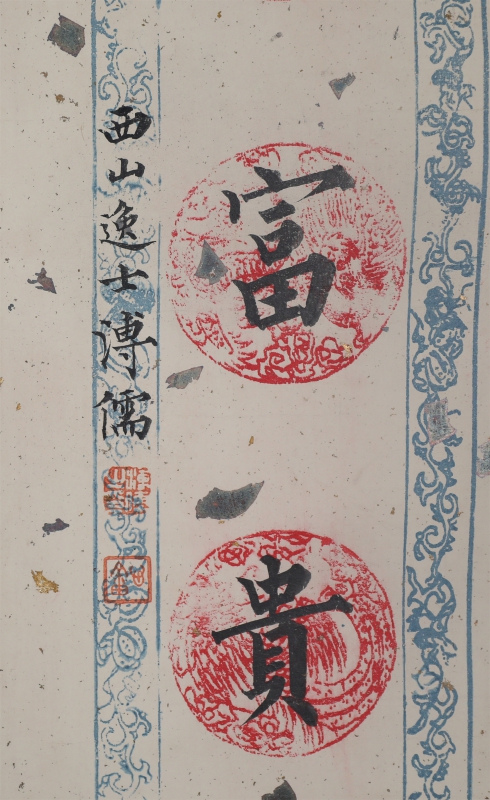 富貴
西山逸士溥儒